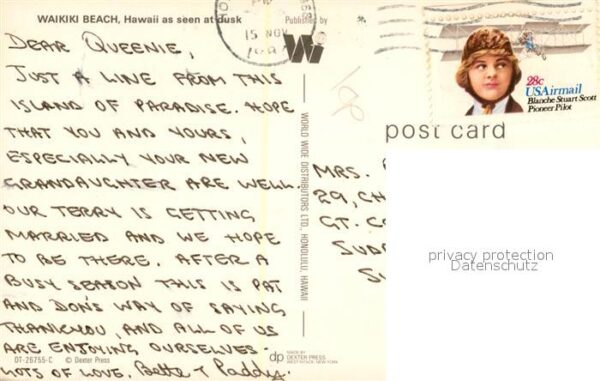 WAIKIKI BEACH, Hawaii as seen at dusk
Published by
15 NOV
28c
USAirmail
Blanche Stuart Scott
Pioneer Pilot
post card
DEAR QUEENIE,
JUST A LINE FROM THIS
ISLAND OF PARADISE. HOPE
THAT YOU AND YOURS,
ESPECIALLY YOUR NEW
GRANDAUGHTER ARE WELL.
OUR TERRY IS GETTING
MARRIED AND WE HOPE
TO BE THERE. AFTER A
BUSY SEASON THIS IS PAT
AND DON'S WAY OF SAYING
THANKYOU, AND ALL OF US
ARE ENJOYING OURSELVES -
LOTS OF LOVE. Bette T Paddy.
WORLD WIDE DISTRIBUTORS LTD. HONOLULU, HAWAII
MRS.
29, CH
GT. CO
SUD
SU
privacy protection
Datenschutz
DT-26755-C © Dexter Press
dp MADE BY
DEXTER PRESS
WEST NYACK, NEW YORK